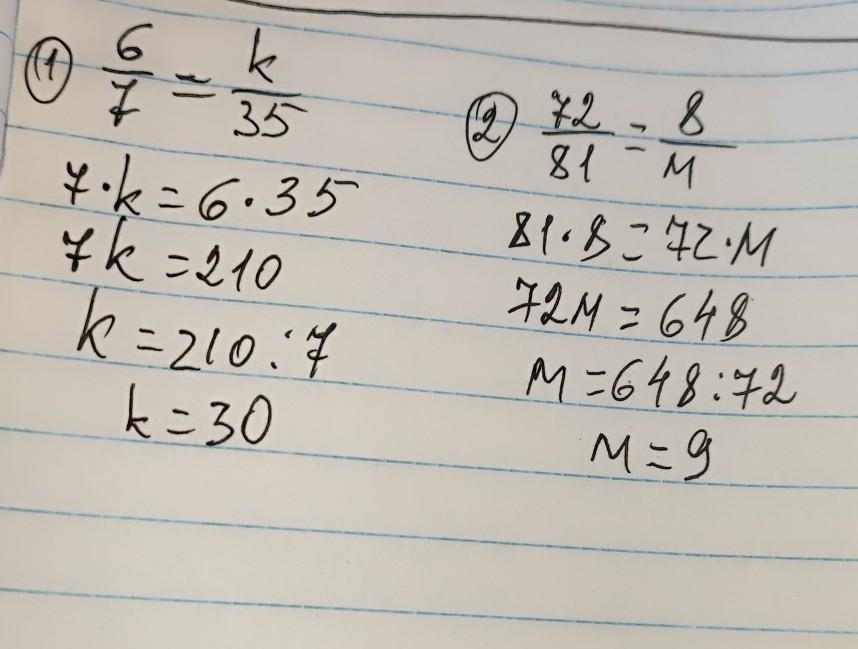 ① 6/7 = k/35
7·k = 6·35
7k = 210
k = 210:7
k = 30
② 72/81 = 8/M
81·8 = 72·M
72M = 648
M = 648:72
M = 9